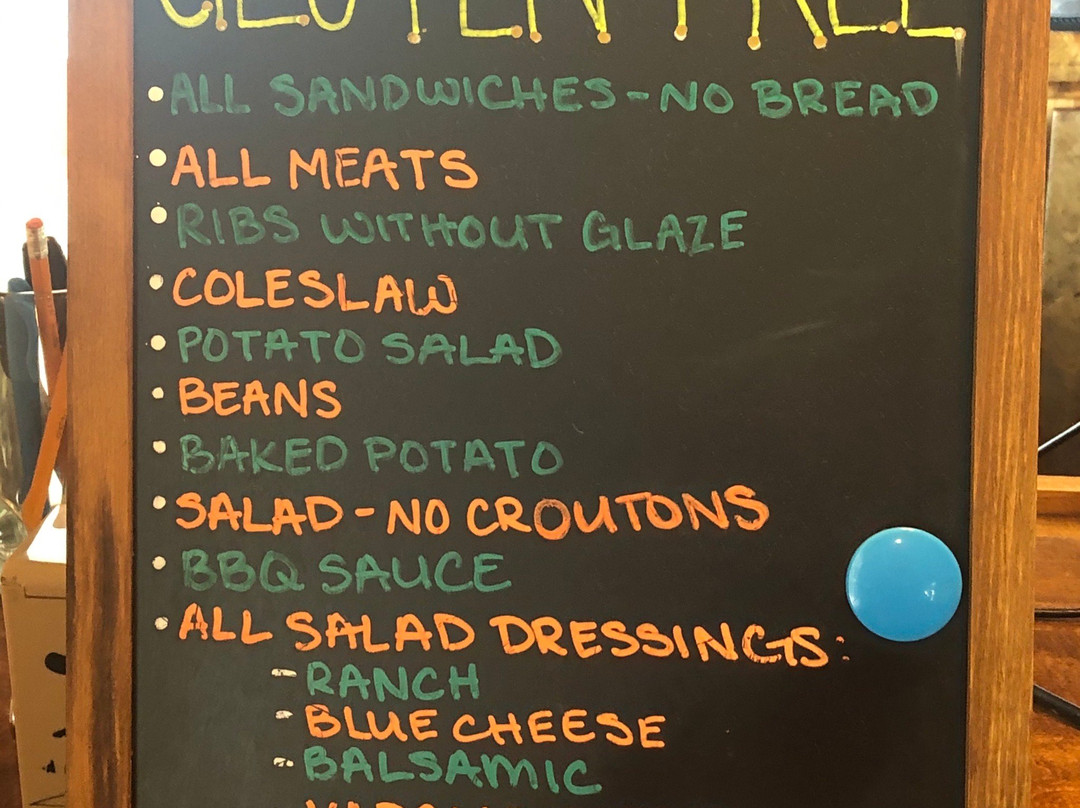 GLUTEN FREE
• ALL SANDWICHES - NO BREAD
• ALL MEATS
• RIBS WITHOUT GLAZE
• COLESLAW
• POTATO SALAD
• BEANS
• BAKED POTATO
• SALAD - NO CROUTONS
• BBQ SAUCE
• ALL SALAD DRESSINGS:
- RANCH
- BLUE CHEESE
- BALSAMIC